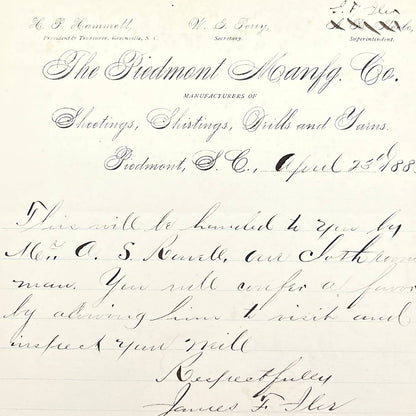 H. P. Hammett,
President & Treasurer, Greenville, S. C.
Secretary.
J. F. Iler
Superintendent.
The Piedmont Manfg. Co.
MANUFACTURERS OF
Sheetings, Shirtings, Drills and Yarns.
Piedmont, S. C., April 23d 188
This will be handed to you by
Mr. A. S. Rowell, our Cloth room
man. You will confer a favor
by allowing him to visit and
inspect your Mill
Respectfully
James F. Iler